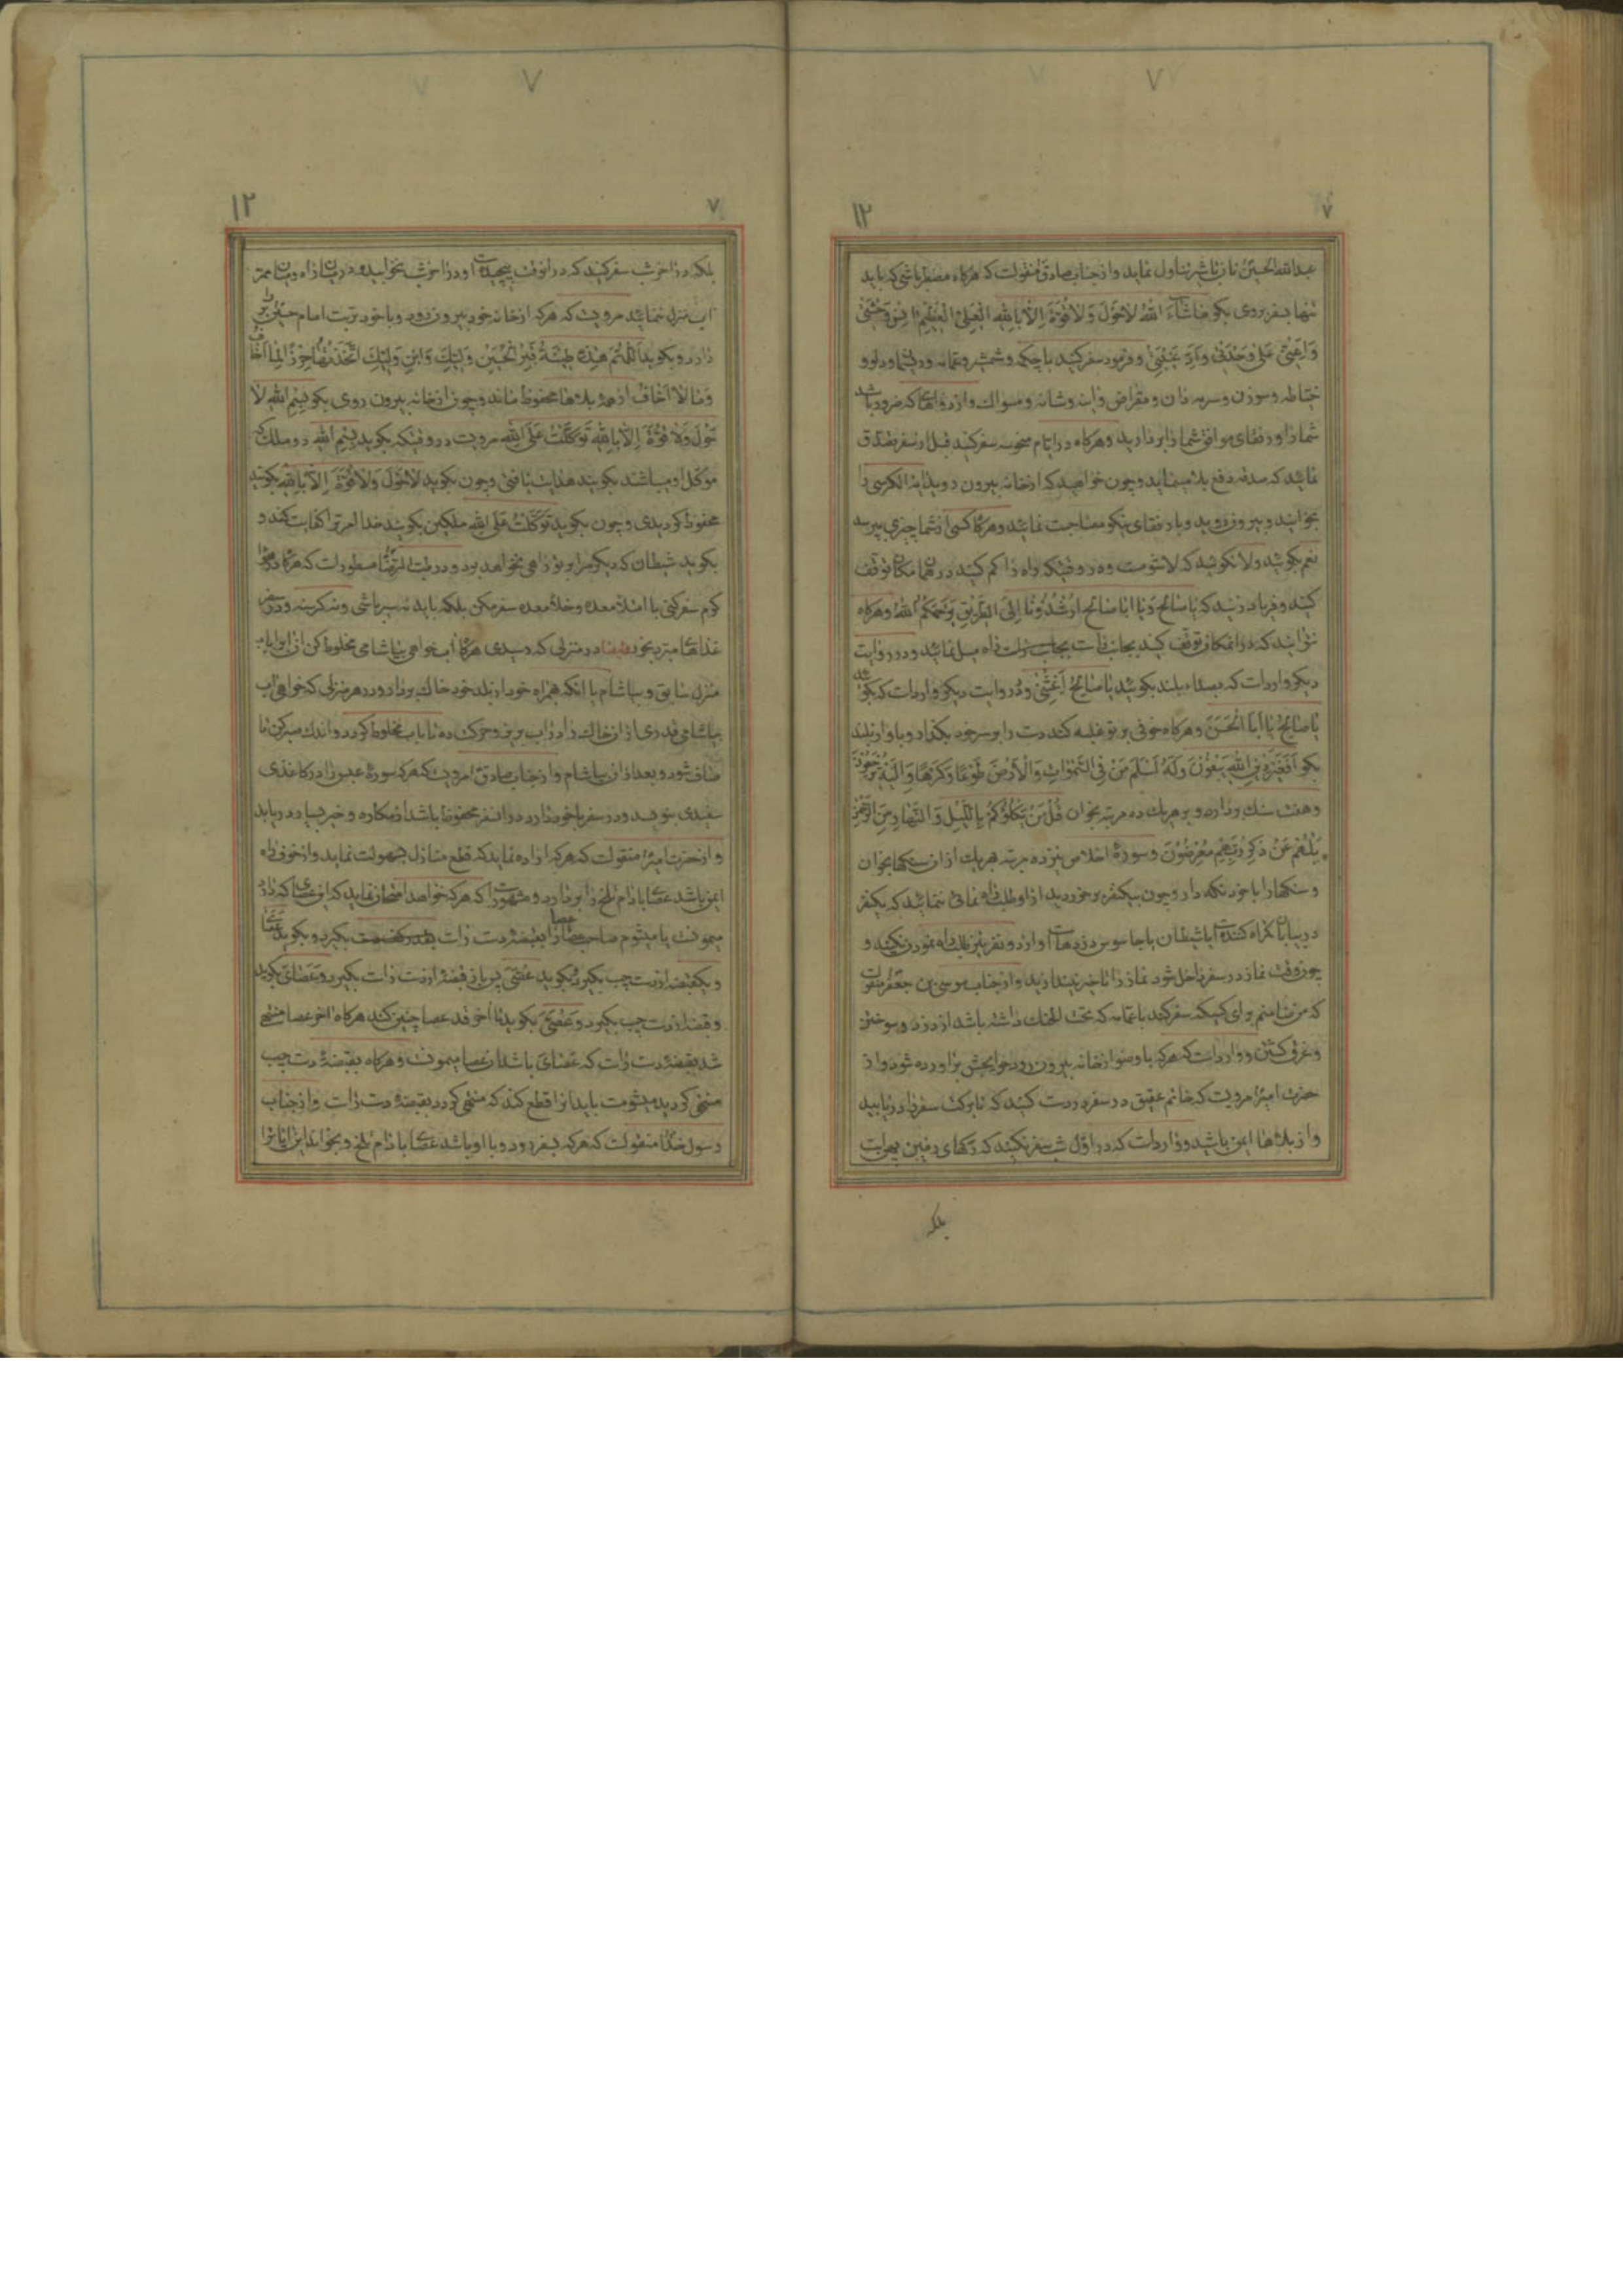 ۷
۷
۱۲
عبدالله الحسین تا زیاد شیر تناول نماید و از جناب صادق منقولست که هرگاه مضطر باشی که باید
تنها بسفر بروی بگو ماشاء الله لا حول ولا قوة الا بالله العلی العظیم انس وحشتی
وَاَعِنّی عَلی وَحْدَتی وَاَدِّ غَیْبَتی و فرمود سفر کنید با چکمه و شمشیر و عمامه و ریسمان و دلو و
خیاطه و سوزن و سرمه دان و مقراض و آینه و شانه و مسواک و از دواهای که ضرور باشد
شما را و رفقای موافق شما را بردارید و هرگاه در ایام منحوسه سفر کنید قبل از سفر تصدق
نمائید که صدقه دفع بلا مینماید و چون خواهید که از خانه بیرون روید آیة الکرسی را
بخوانید و بیرون روید و با رفقای نیکو مصاحبت نمائید و هرگاه کسی از شما چیزی بپرسد
نعم بگوئید و لا نگوئید که لا شومست و در وقتیکه راه را گم کنید در همان مکان توقف
کنید و فریاد زنید که یا صالح ویا ابا صالح ارشدونا الی الطریق رحمکم الله و هرگاه
نتوانید که در آنمکان توقف کنید بجانب راست راه میل نمائید و در روایت
دیگر وارد است که بصداء بلند بگوئید یا صالح اغثنی و در روایت دیگر وارد است که بگوئید
یا صالح یا ابا الحسن و هرگاه خوفی بر تو غلبه کند دست را بر سر خود بگذار و باواز بلند
بگو اَفَغَیْرَ دینِ اللهِ یَبْغُونَ وَلَهُ اَسْلَمَ مَنْ فِی السَّمواتِ وَالْاَرْضِ طَوْعًا وَکَرْهًا وَاِلَیْهِ یُرْجَعُونَ
و هفت سنک بردار و بر هریک ده مرتبه بخوان قُلْ مَنْ یَکْلَؤُکُمْ بِاللَّیْلِ وَالنَّهارِ مِنَ الرَّحْمنِ
بَلْ هُمْ عَنْ ذِکْرِ رَبِّهِمْ مُعْرِضُونَ و سورهٔ اخلاص یزده مرتبه بهریک از آن سنکها بخوان
و سنکها را با خود نگه دار و چون بیکنفر برخوردید از او طلب راه نمائی ننمائید که یکنفر
در بیابان گمراه کننده است یا شیطان یا جاسوس دزدها است و از دو نفر نیز طلب راه نمودن نکنید و
چون وقت نماز در سفر داخل شود نماز را تاخیر نیندازید و از جناب موسی بن جعفر منقولست
که من ضامنم برای کسیکه سفر کند با عمامه که تحت الحنک داشته باشد از دزد و سوختن
و غرق گشتن و وارد است که هرکه با وضو از خانه بیرون رود حوایجش براورده شود و از
حضرت امیر مرویست که خاتم عقیق در سفر در دست کنید که تا برکت سفر را دریابید
و از بلاها ایمن باشید و وارد است که در اول شب سفر نکنید که رکهای زمین بهیات
بلکه
۷
۷
۱۲
بلکه در آخر شب سفر کنید که در انوقت پیچیده است و در آخر شب نخوابید و در میان راه و میان ممر
آب منزل ننمائید مرویست که هرکه از خانه خود بیرون رود و با خود تربت امام حسین را
دارد و بگوید اَللّهُمَّ هذِهِ طینَةُ قَبْرِ الْحُسَیْنِ وَلِیِّکَ وَابْنِ وَلِیِّکَ اتَّخَذْتُها حِرْزًا لِما اَخافُ
وَما لا اَخافُ از همه بلاها محفوظ ماند و چون از خانه بیرون روی بگو بسم الله لا
حول ولا قوة الا بالله توکلت علی الله مرویست در وقتیکه بگوید بسم الله دو ملک که
موکل او میباشند بگویند هدایت یافتی و چون بگوید لا حول ولا قوة الا بالله بگویند
محفوظ گردیدی و چون بگوید توکلت علی الله ملکین بگویند خدا امر ترا کفایت کند و
بگوید شیطان که دیگر مرا بر تو راهی نخواهد بود
کرم سفر کنی با امتلاء معده و خلاء معده سفر مکن بلکه باید نه سیر باشی و نه گرسنه و در سفر
غذاهای مبرد بخور در منزلی که رسیدی هرگاه آب خواهی بیاشامی مخلوط کن آنرا با آب
منزل سابق و بیاشام یا انکه همراه خود از بلد خود خاک بردار و در هر منزلی که خواهی آب
بیاشامی قدری از آن خاک را در آب بریز و حرکت ده تا باب مخلوط گردد و اندک صبر کن تا
صاف شود و بعد از آن بیاشام و از جناب صادق مرویست که هرکه سورهٔ عبس را در کاغذی
سفیدی بنویسد و در سفر با خود دارد در آن سفر محفوظ باشد از مکاره و خیر بسیار دریابد
و از حضرت امیر منقولست که هرکه اراده نماید که قطع منازل بسهولت نماید و از خوف راه
ایمن باشد عصا بادام تلخ را بردارد و مشهور است که هرکه خواهد امتحان نماید که این عصای که دارد
میمونست یا میشوم صاحب عصا عصا را بقبضهٔ دست راست بگیرد و بگوید عصای
و یکقبضه از دست چپ بگیرد و بگوید عَصَیَ پس باز قبضهٔ از دست راست بگیرد و عصای بگوید
و قبضهٔ از دست چپ بگیرد و عَصَیَ بگوید تا آخر قد عصا چنین کند هرگاه آخر عصا منتهی
شد بقبضهٔ دست راست که عصای باشد آن عصا میمونست و هرگاه بقبضهٔ دست چپ
منتهی گردید میشومست باید آنرا قطع کند که منتهی گردد بقبضهٔ دست راست و از جناب
رسول خدا منقولست که هرکه بسفر رود و با او باشد عصا بادام تلخ و بخواند این آیات را